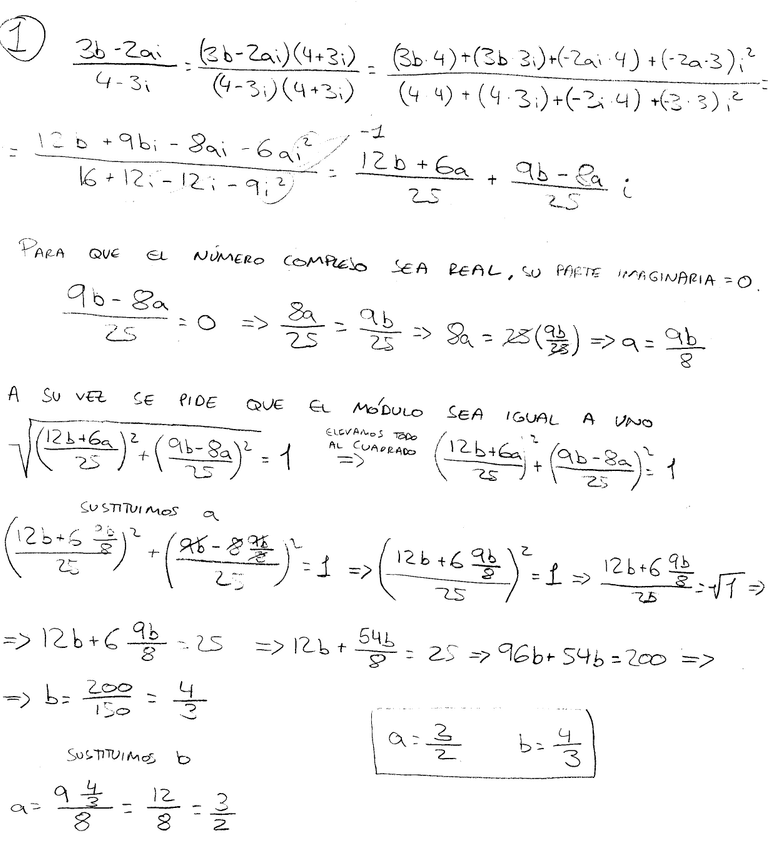 1
(3b-2ai)/(4-3i) = ((3b-2ai)(4+3i))/((4-3i)(4+3i)) = ((3b·4)+(3b·3i)+(-2ai·4)+(-2a·3)i²)/((4·4)+(4·3i)+(-3i·4)+(-3·3)i²) =
= (12b+9bi-8ai-6ai²)/(16+12i-12i-9i²) -1 = (12b+6a)/25 + (9b-8a)/25 i
PARA QUE EL NÚMERO COMPLEJO SEA REAL, SU PARTE IMAGINARIA = 0.
(9b-8a)/25 = 0 => 8a/25 = 9b/25 => 8a = 25(9b/25) => a = 9b/8
A SU VEZ SE PIDE QUE EL MÓDULO SEA IGUAL A UNO
√(((12b+6a)/25)² + ((9b-8a)/25)²) = 1 ELEVAMOS TODO AL CUADRADO => ((12b+6a)/25)² + ((9b-8a)/25)² = 1
SUSTITUIMOS a
((12b+6 9b/8)/25)² + ((9b-8 9b/8)/25)² = 1 => ((12b+6 9b/8)/25)² = 1 => (12b+6 9b/8)/25 = √1 =>
=> 12b+6 9b/8 = 25 => 12b + 54b/8 = 25 => 96b+54b=200 =>
=> b = 200/150 = 4/3
a = 3/2 b = 4/3
SUSTITUIMOS b
a = (9 4/3)/8 = 12/8 = 3/2